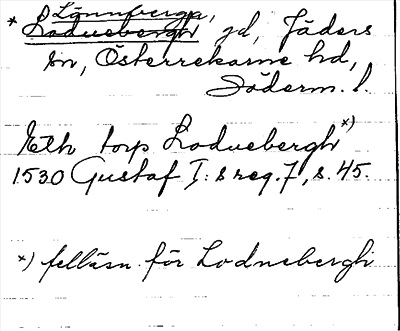 * Lönnberga,
Loduebergh gd, Jäders
sn, Österrekarne hd,
Söderm. l.
Eth torp Loduebergh *)
1530 Gustaf I:s reg. 7, s. 45.
*) felläsn. för Lodnebergh